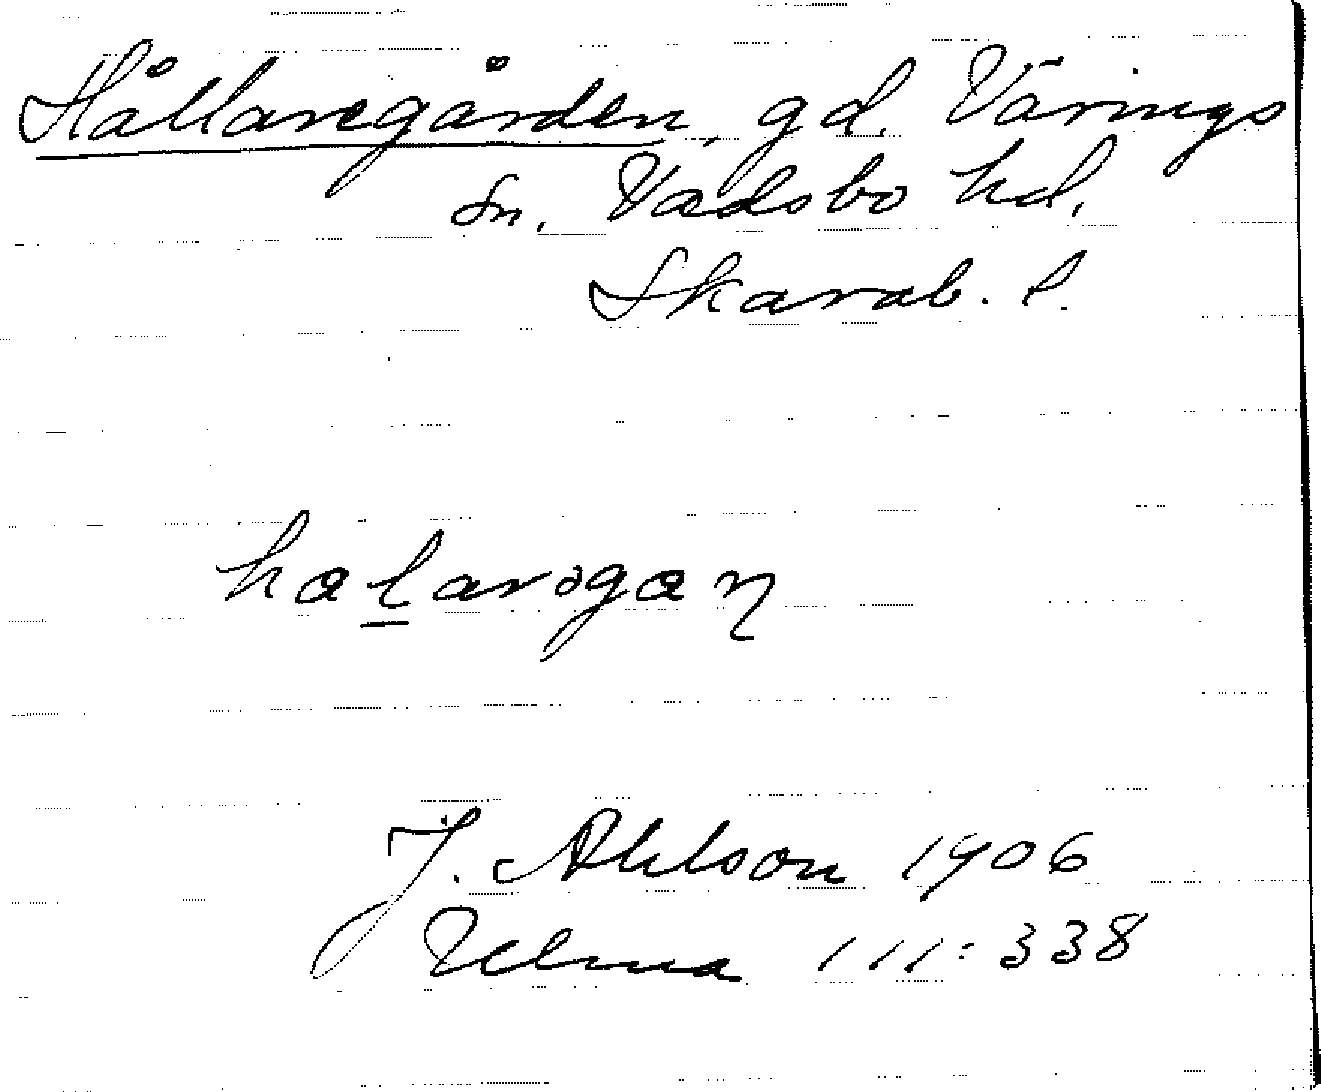 Hållaregården, gd. Värings
sn. Vadsbo hd.
Skarab. l.
halarəgaɳ
J. Ahlson 1906
Ulma 111:338